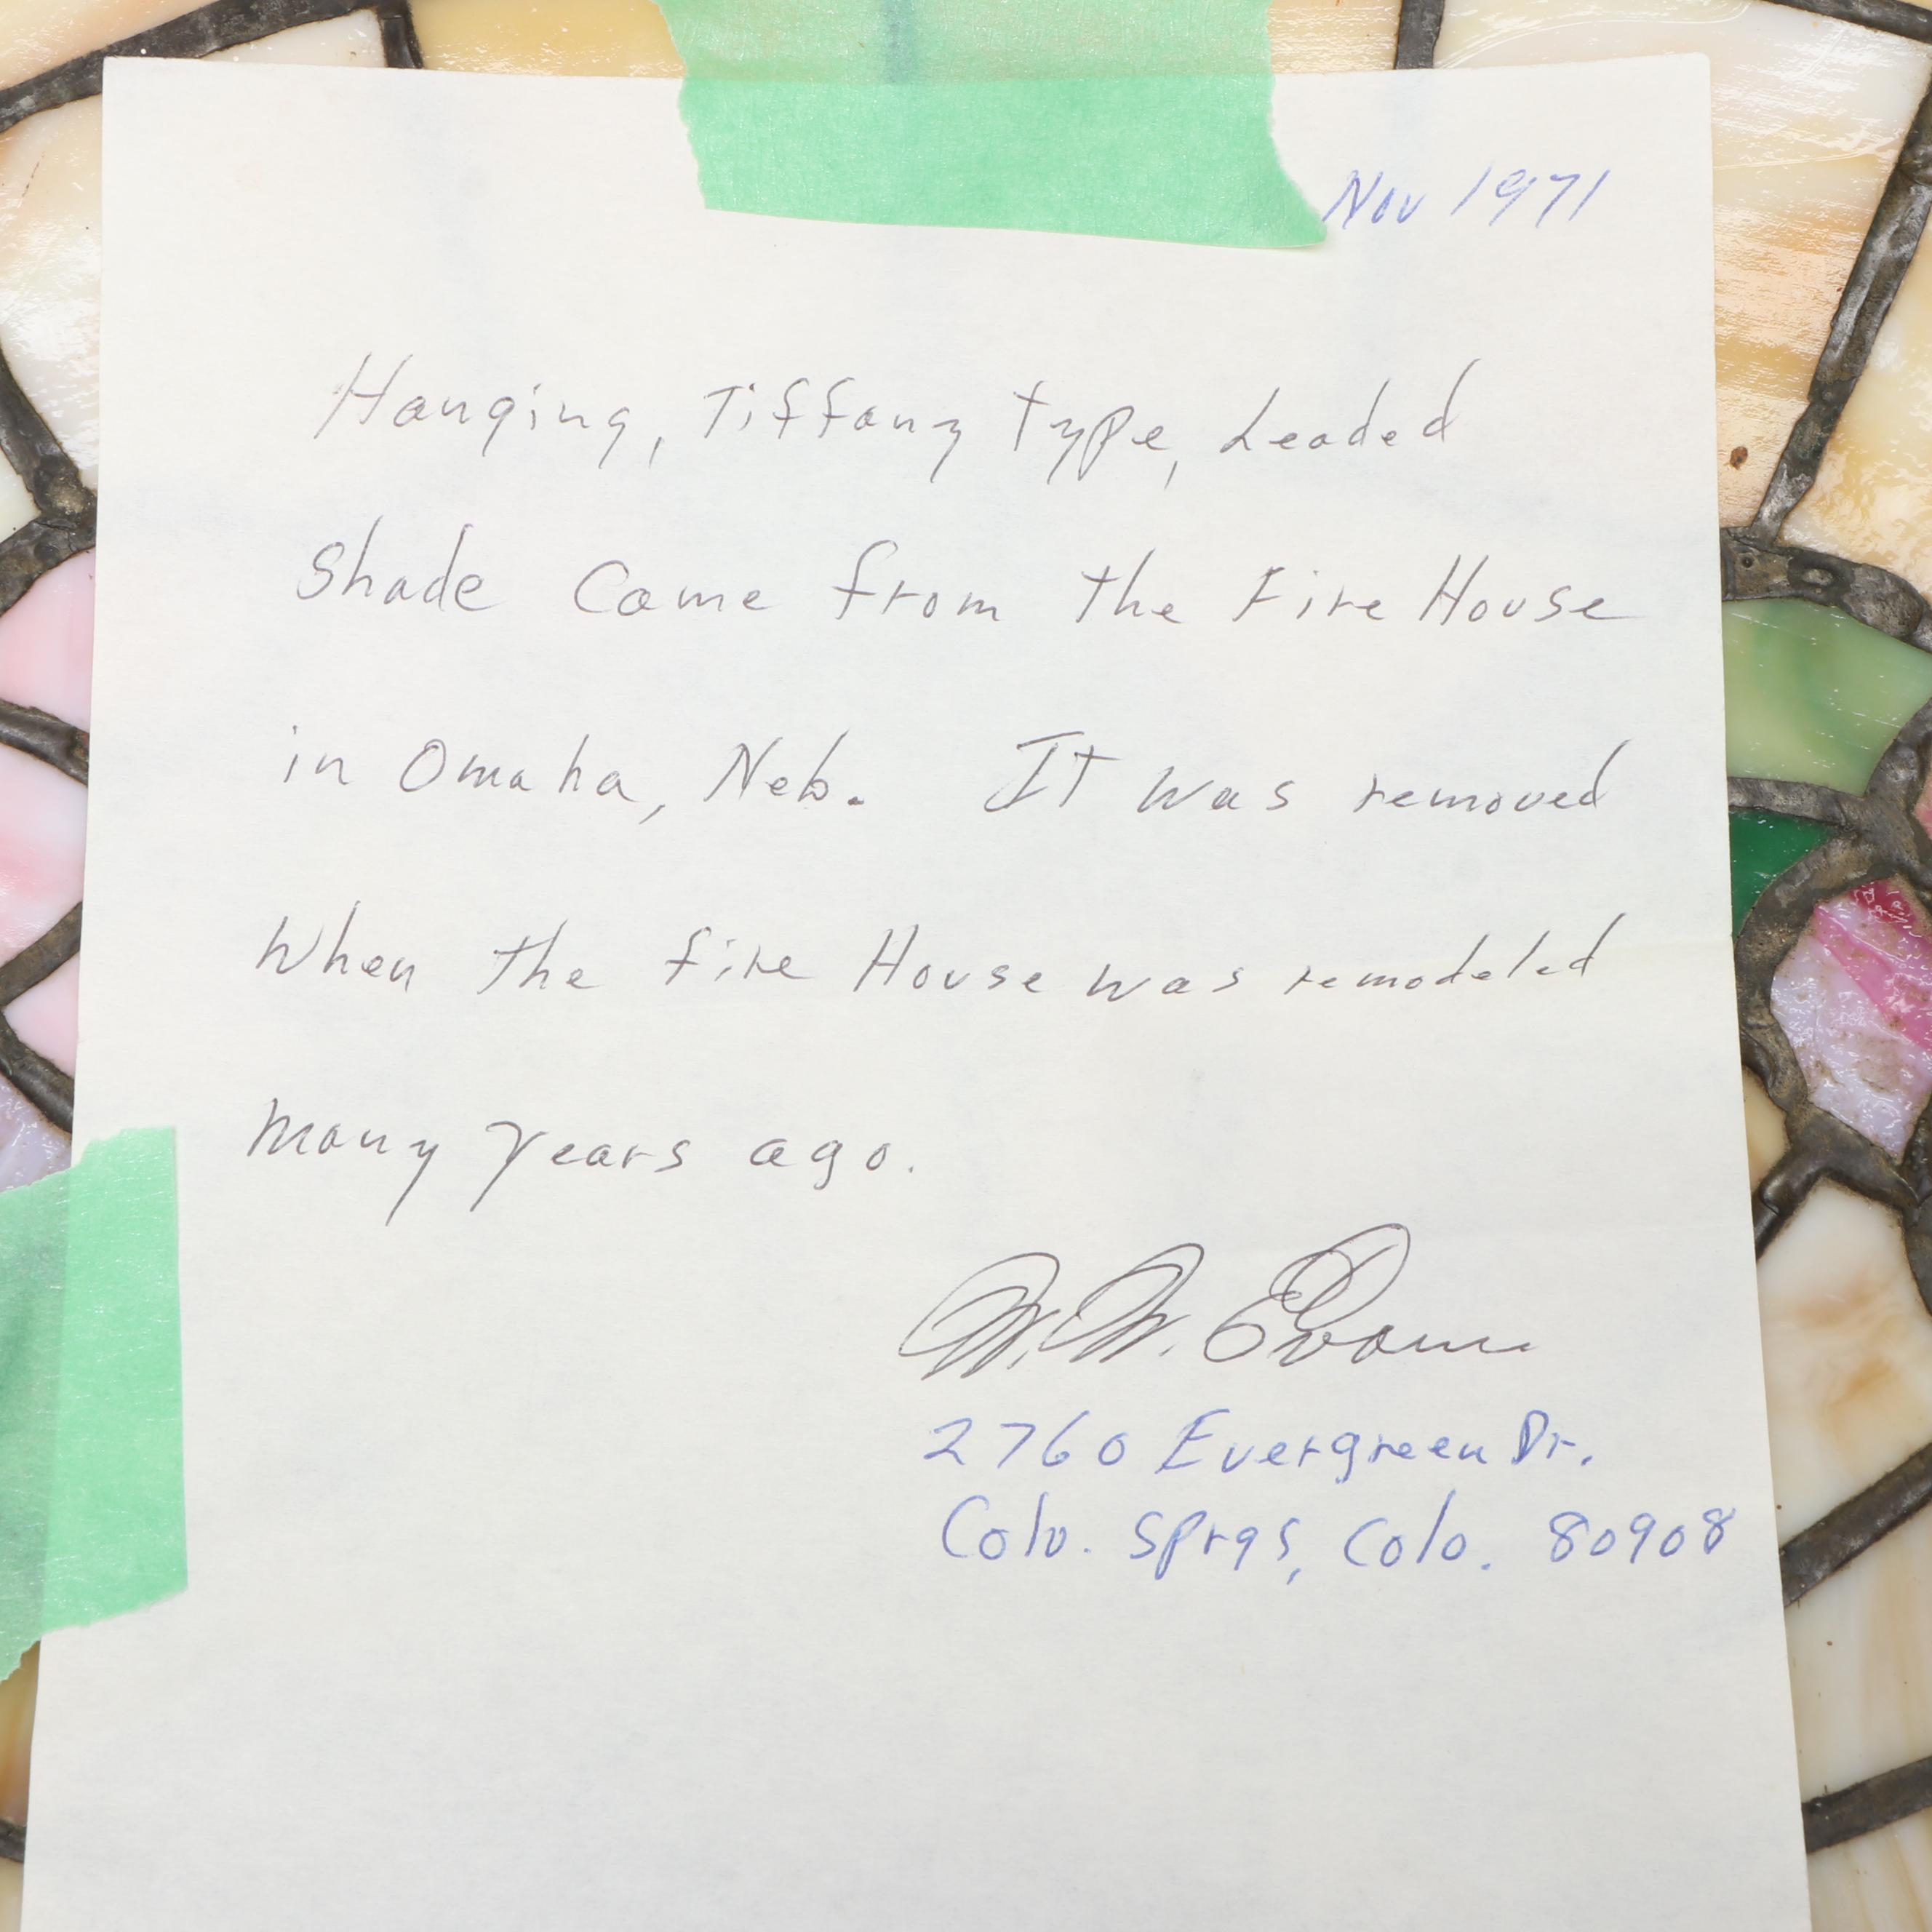 Nov 1971
Hanging, Tiffany type, Leaded
Shade Came from the Fire House
in Omaha, Neb. It was removed
When the fire House was remodeled
Many years ago.
Evans
2760 Evergreen Dr.
Colo. Sprgs, Colo. 80908